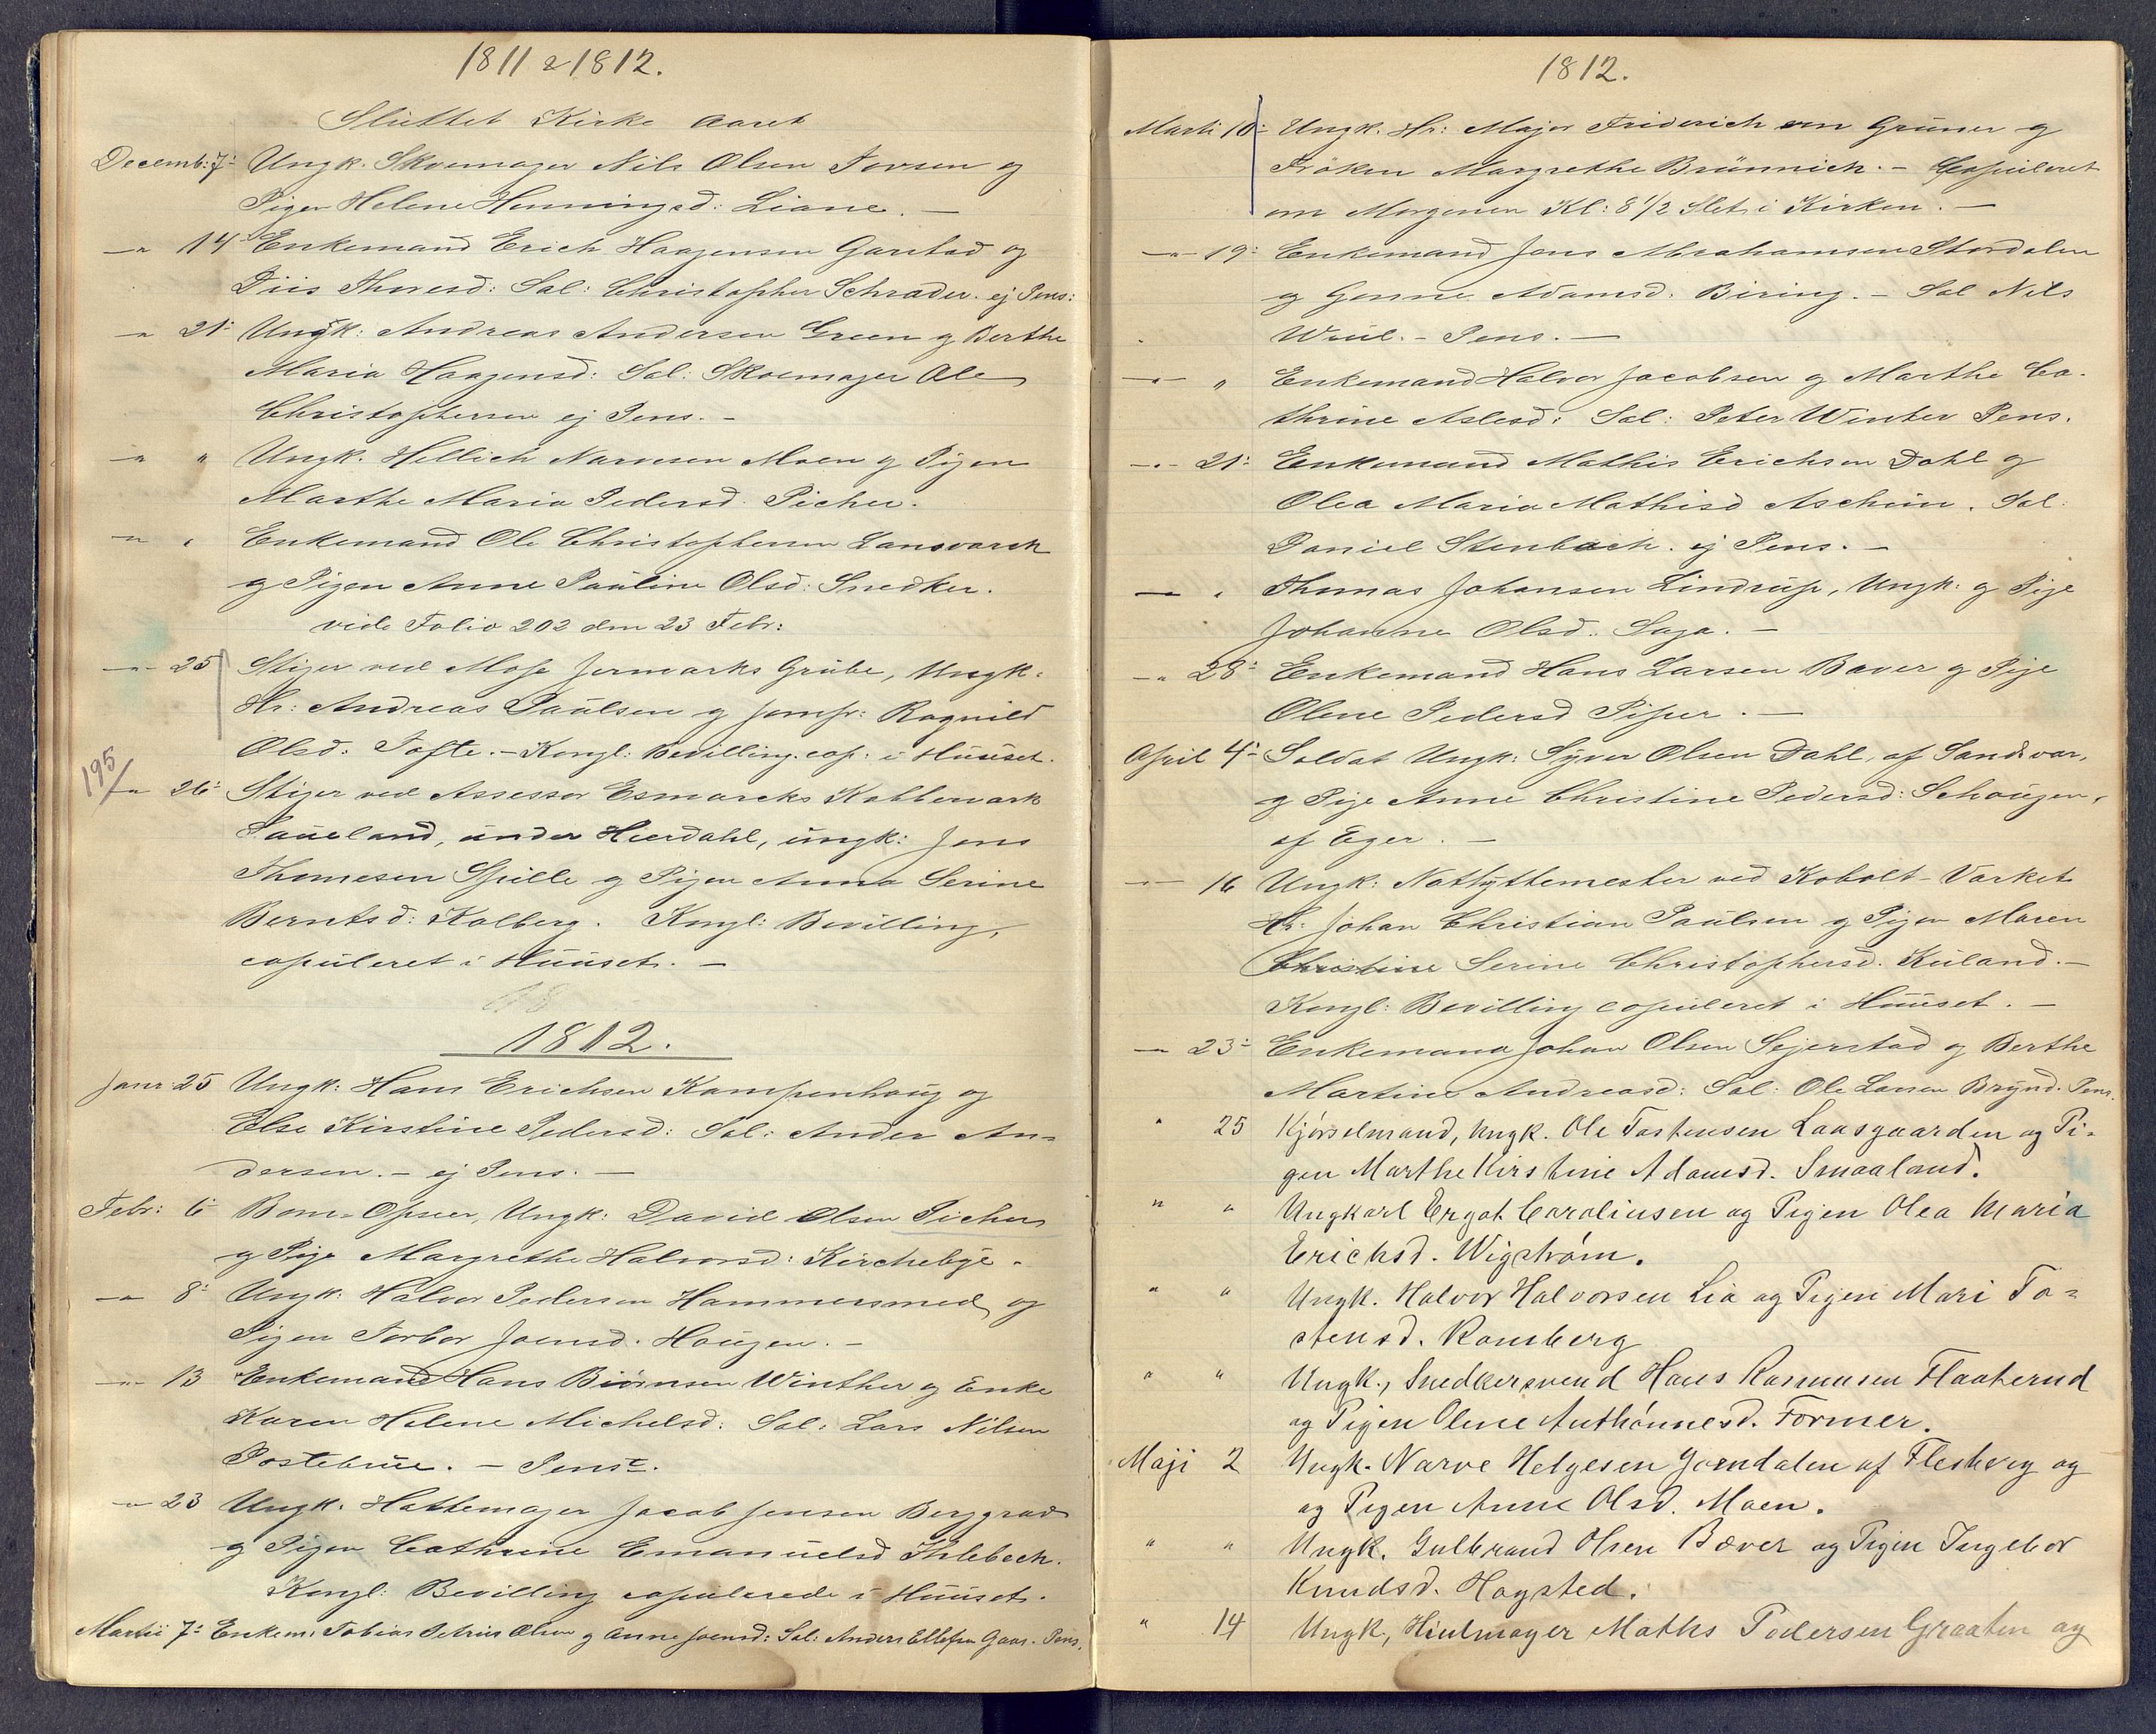 1811 & 1812.
Sluttet Kirke Aaret
Decemb: 7: Ungk. Skoemager Nils Olsen Iversen og
Pigen Helene Henningsd: Liane. –
–"– 14: Enkemand Erich Haagensen Garstad og
Siis Thoresd: Sal: Christopher Schrader. ej Pens:
–"– 21: Ungk: Andreas Andersen Green og Berthe
Maria Haagensd: Sal: Skoemager Ole
Christophersen ej Pens. –
–"– " Ungk. Hellich Narvesen Moen og Pigen
Marthe Maria Pedersd. Picher.
–"– " Enkemand Ole Christophersen Lansvarck
og Pigen Anne Pauline Olsd: Snedker.
vide Folio 202 den 23 Febr:
–"– 25 Stiger ved Moss Jernwarks Grube, Ungk.
Hr: Andreas Paulsen og Jomfr: Ragnild
Olsd: Tofte. – Kongl: Bevilling. cop: i Huuset.
195
–"– 26: Stiger ved Assessor Esmarcks Kobbewark
Saueland, under Hierdahl, ungk: Jens
Thomesen Spille og Pigen Anna Serine
Berntsd: Kolberg. Kongl: Bevilling,
copuleret i Huuset. –
1812.
Janr 25 Ungk: Hans Erichsen Kampenhoug og
Else Kirstine Pedersd: Sal: Ander An-
dersen. – ej Pens. –
Febr: 6 Bom-Opseer, Ungk: David Olsen Picher
og Pige Margrethe Halvorsd: Kirchebye.
–"– 8: Ungk: Halvor Pedersen Hammersmed og
Pigen Torbor Joensd. Hougen. –
–"– 13 Enkemand Hans Biørnsen Winther og Enke
Karen Helene Michelsd: Sal: Lars Nilsen
Postebrue. – Penst.
–"– 23 Ungk. Hattemager Jacob Jensen Berggrad
og Pigen Cathrine Emanuelsd Ihlebech.
Kongl: Bevilling copulerede i Huuset.
Martii 7: Enkem: Tobias Petrus Olsen og Anne Joensd: Sal: Anders Ellefsen Gaas. Pens.
1812.
Marti 10: Ungk. Hr: Major Friderich von Gruner og
Frøken Margrethe Brünnich. – Copuleret
om Morgenen Kl: 8 1/2 Slet i Kirken. –
–"– 19: Enkemand Jens Abrahamsen Stordalen
og Gonne Adamsd. Biring. – Sal Nils
Wuul. – Pens. –
–"– " Enkemand Halvor Jacobsen og Marthe Ca-
thrine Aslesd: Sal: Peter Winter Pens.
–"– 21: Enkemand Mathis Erichsen Dahl og
Olea Maria Mathisd Aschim. Sal:
Daniel Stenbach. ej Pens. –
–"– " Thomas Johansen Lindrup, Ungk: og Pige
Johanne Olsd. Saga. –
–"– 28: Enkemand Hans Larsen Baver og Pige
Olene Pedersd Piper. –
April 4: Soldat Ungk: Syver Olsen Dahl, af Sandsvær,
og Pige Anne Christine Pedersd: Schougen,
af Eger. –
–"– 16 Ungk: Natlyttemester ved Kobolt-Varket
Hr: Johan Christian Paulsen og Pigen Maren
Christine Serine Christophersd. Kuland. –
Kongl: Bevilling copuleret i Huuset. –
–"– 23: Enkemand Johan Olsen Sejerstad og Berthe
Martine Andreasd: Sal: Ole Larsen Brynd. Pens.
" 25 Kjørselmand, Ungk. Ole Tostensen Laasgaarden og Pi-
gen Marthe Kirstine Adamsd. Smaaland.
" " Ungkarl Ergot Carolinsen og Pigen Olea Maria
Erichsd. Wigstrøm.
" " Ungk. Halvor Halvorsen Lia og Pigen Mari To-
stensd. Ramberg
" " Ungk., Snedkersvend Hans Rasmusen Flaaterud
og Pigen Olene Anthønnesd. Former.
Maji 2 Ungk. Narve Helgesen Jomdalen af Flesberg og
og Pigen Anne Olsd. Moen.
" " Ungk. Gulbrand Olsen Bæver og Pigen Ingebor
Knudsd. Hogsted.
" 14 Ungk, Hiulmager Maths Pedersen Graaten og